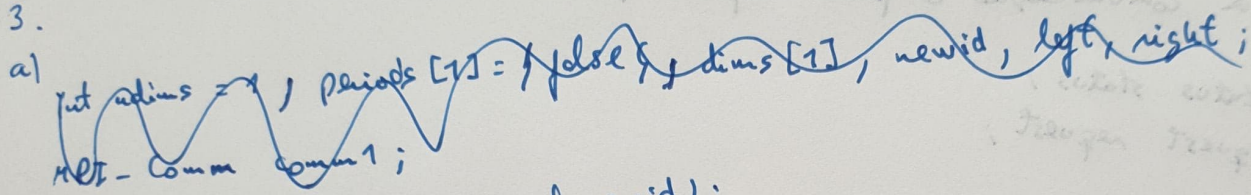 3.
a) int ndims = 1, periods[1] = {false}, dims[1], newid, left, right;
MPI_Comm comm1;